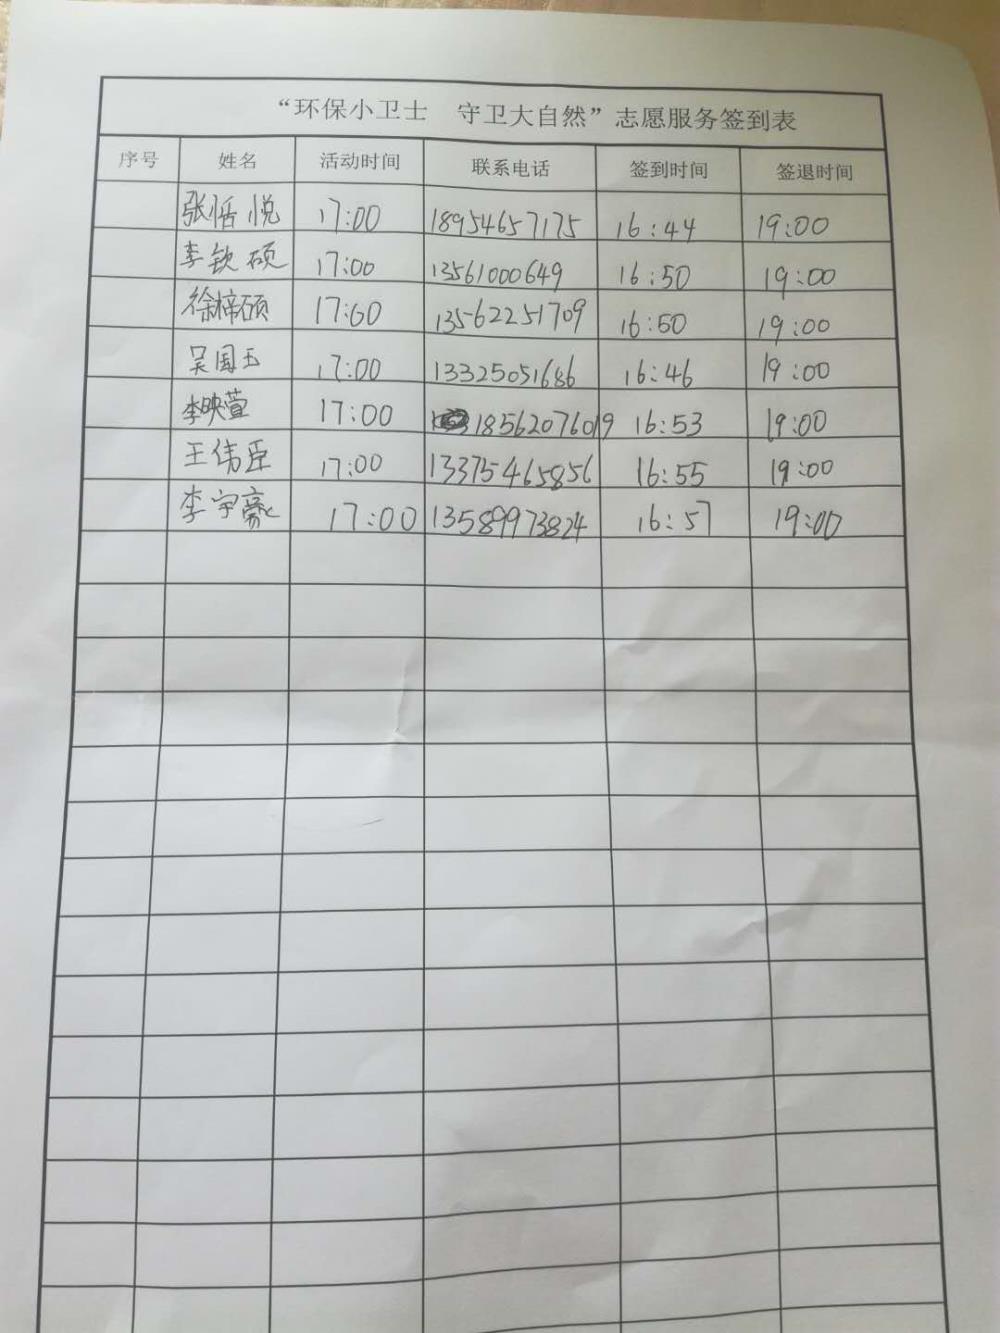 “环保小卫士 守卫大自然”志愿服务签到表
序号 姓名 活动时间 联系电话 签到时间 签退时间
张恬悦 17:00 18954657175 16:44 19:00
李钦硕 17:00 13561000649 16:50 19:00
徐梓硕 17:00 13562251709 16:50 19:00
吴国玉 17:00 13325051686 16:46 19:00
李映萱 17:00 18562076019 16:53 19:00
王伟臣 17:00 13375465856 16:55 19:00
李宇豪 17:00 13589973824 16:57 19:00